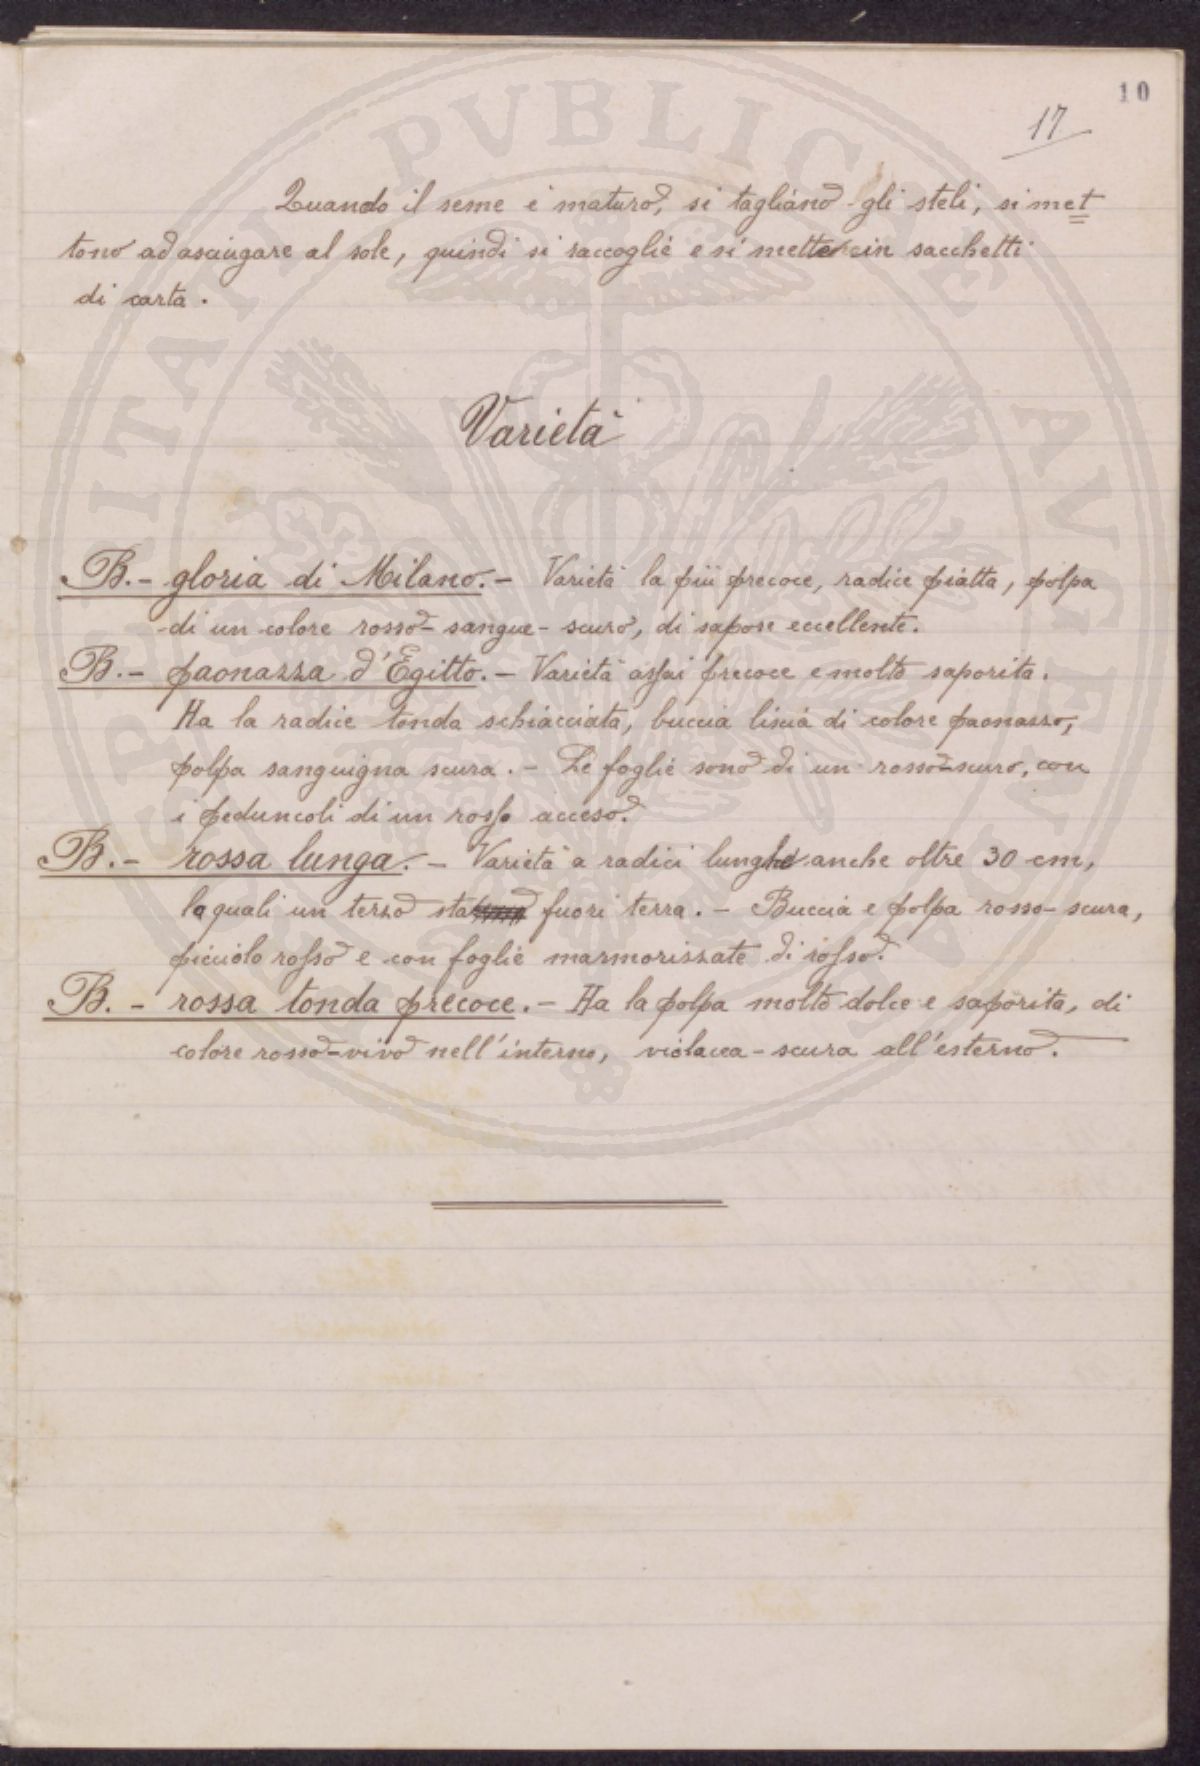 10
17
Quando il seme è maturo, si tagliano gli steli, si met
tono ad asciugare al sole, quindi si raccoglie e si mette in sacchetti
di carta.
Varietà
B.- gloria di Milano.- Varietà la più precoce, radice piatta, polpa
di un colore rosso-sangue-scuro, di sapore eccellente.
B.- paonazza d'Egitto.- Varietà assai precoce e molto saporita.
Ha la radice tonda schiacciata, buccia liscia di colore paonazzo,
polpa sanguigna scura.- Le foglie sono di un rosso-scuro, con
i peduncoli di un rosso acceso.
B.- rossa lunga.- Varietà a radici lunghe anche oltre 30 cm,
la quali un terzo sta fuori terra.- Buccia e polpa rosso-scura,
picciolo rosso e con foglie marmorizzate di rosso.
B.- rossa tonda precoce.- Ha la polpa molto dolce e saporita, di
colore rosso-vivo nell'interno, violacea-scura all'esterno.